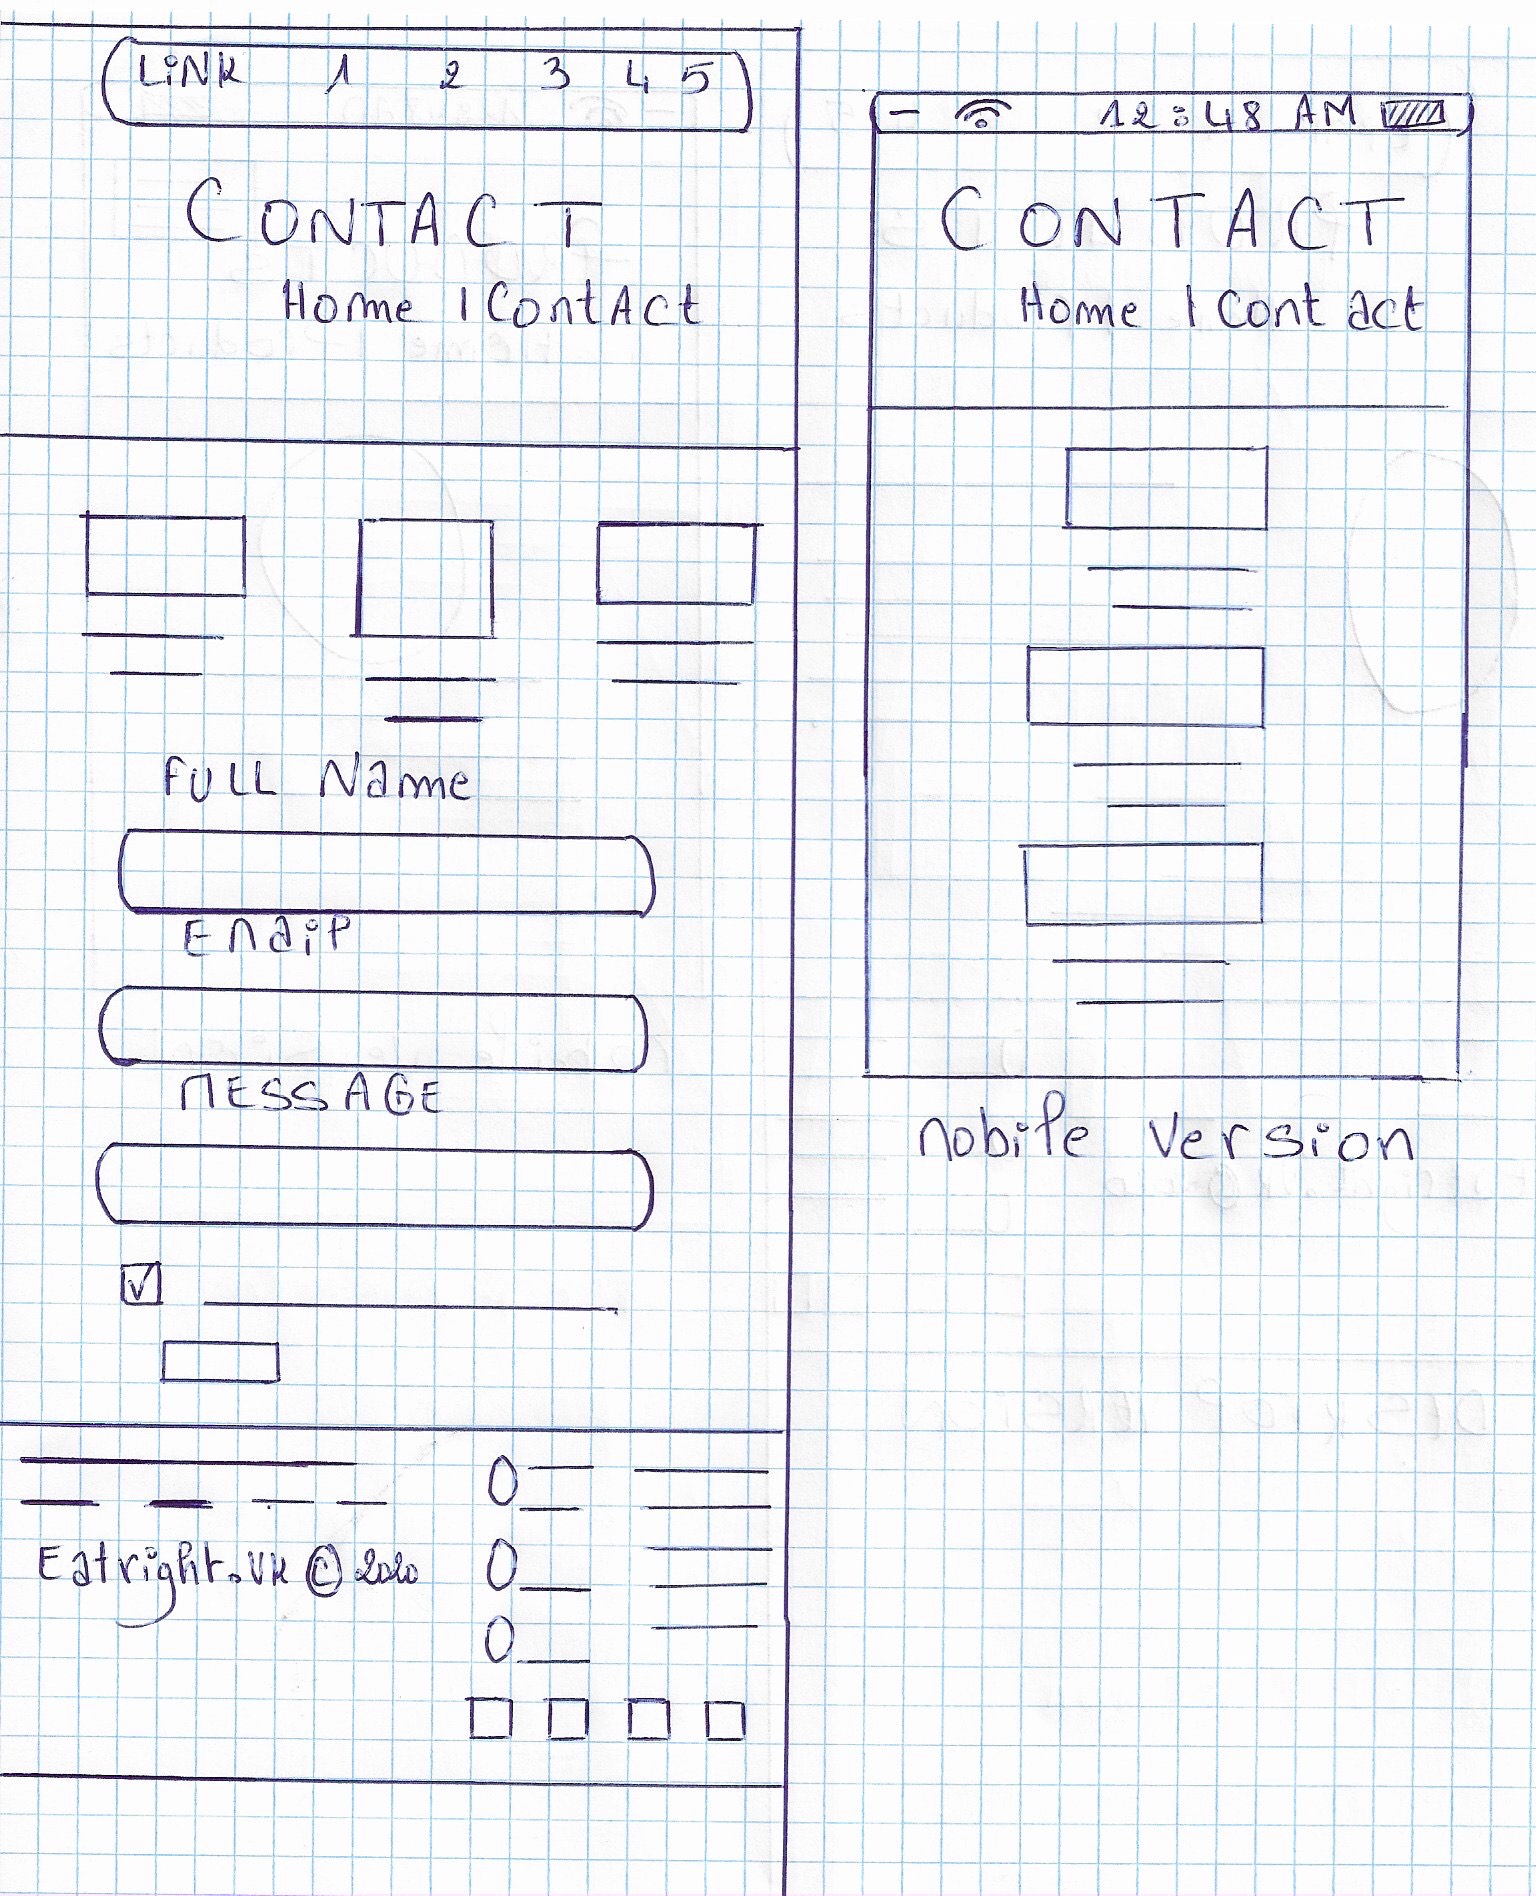 LiNK 1 2 3 4 5
CONTACT
Home | ContAct
FULL Name
Email
MESSAGE
Eatright.UK © 2020
12:48 AM
CONTACT
Home | Contact
mobile version